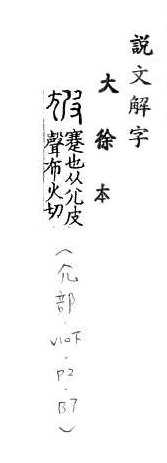 説文解字
大徐本
蹇也从尣皮
聲布火切
（尣部．V10下．P2．B7）